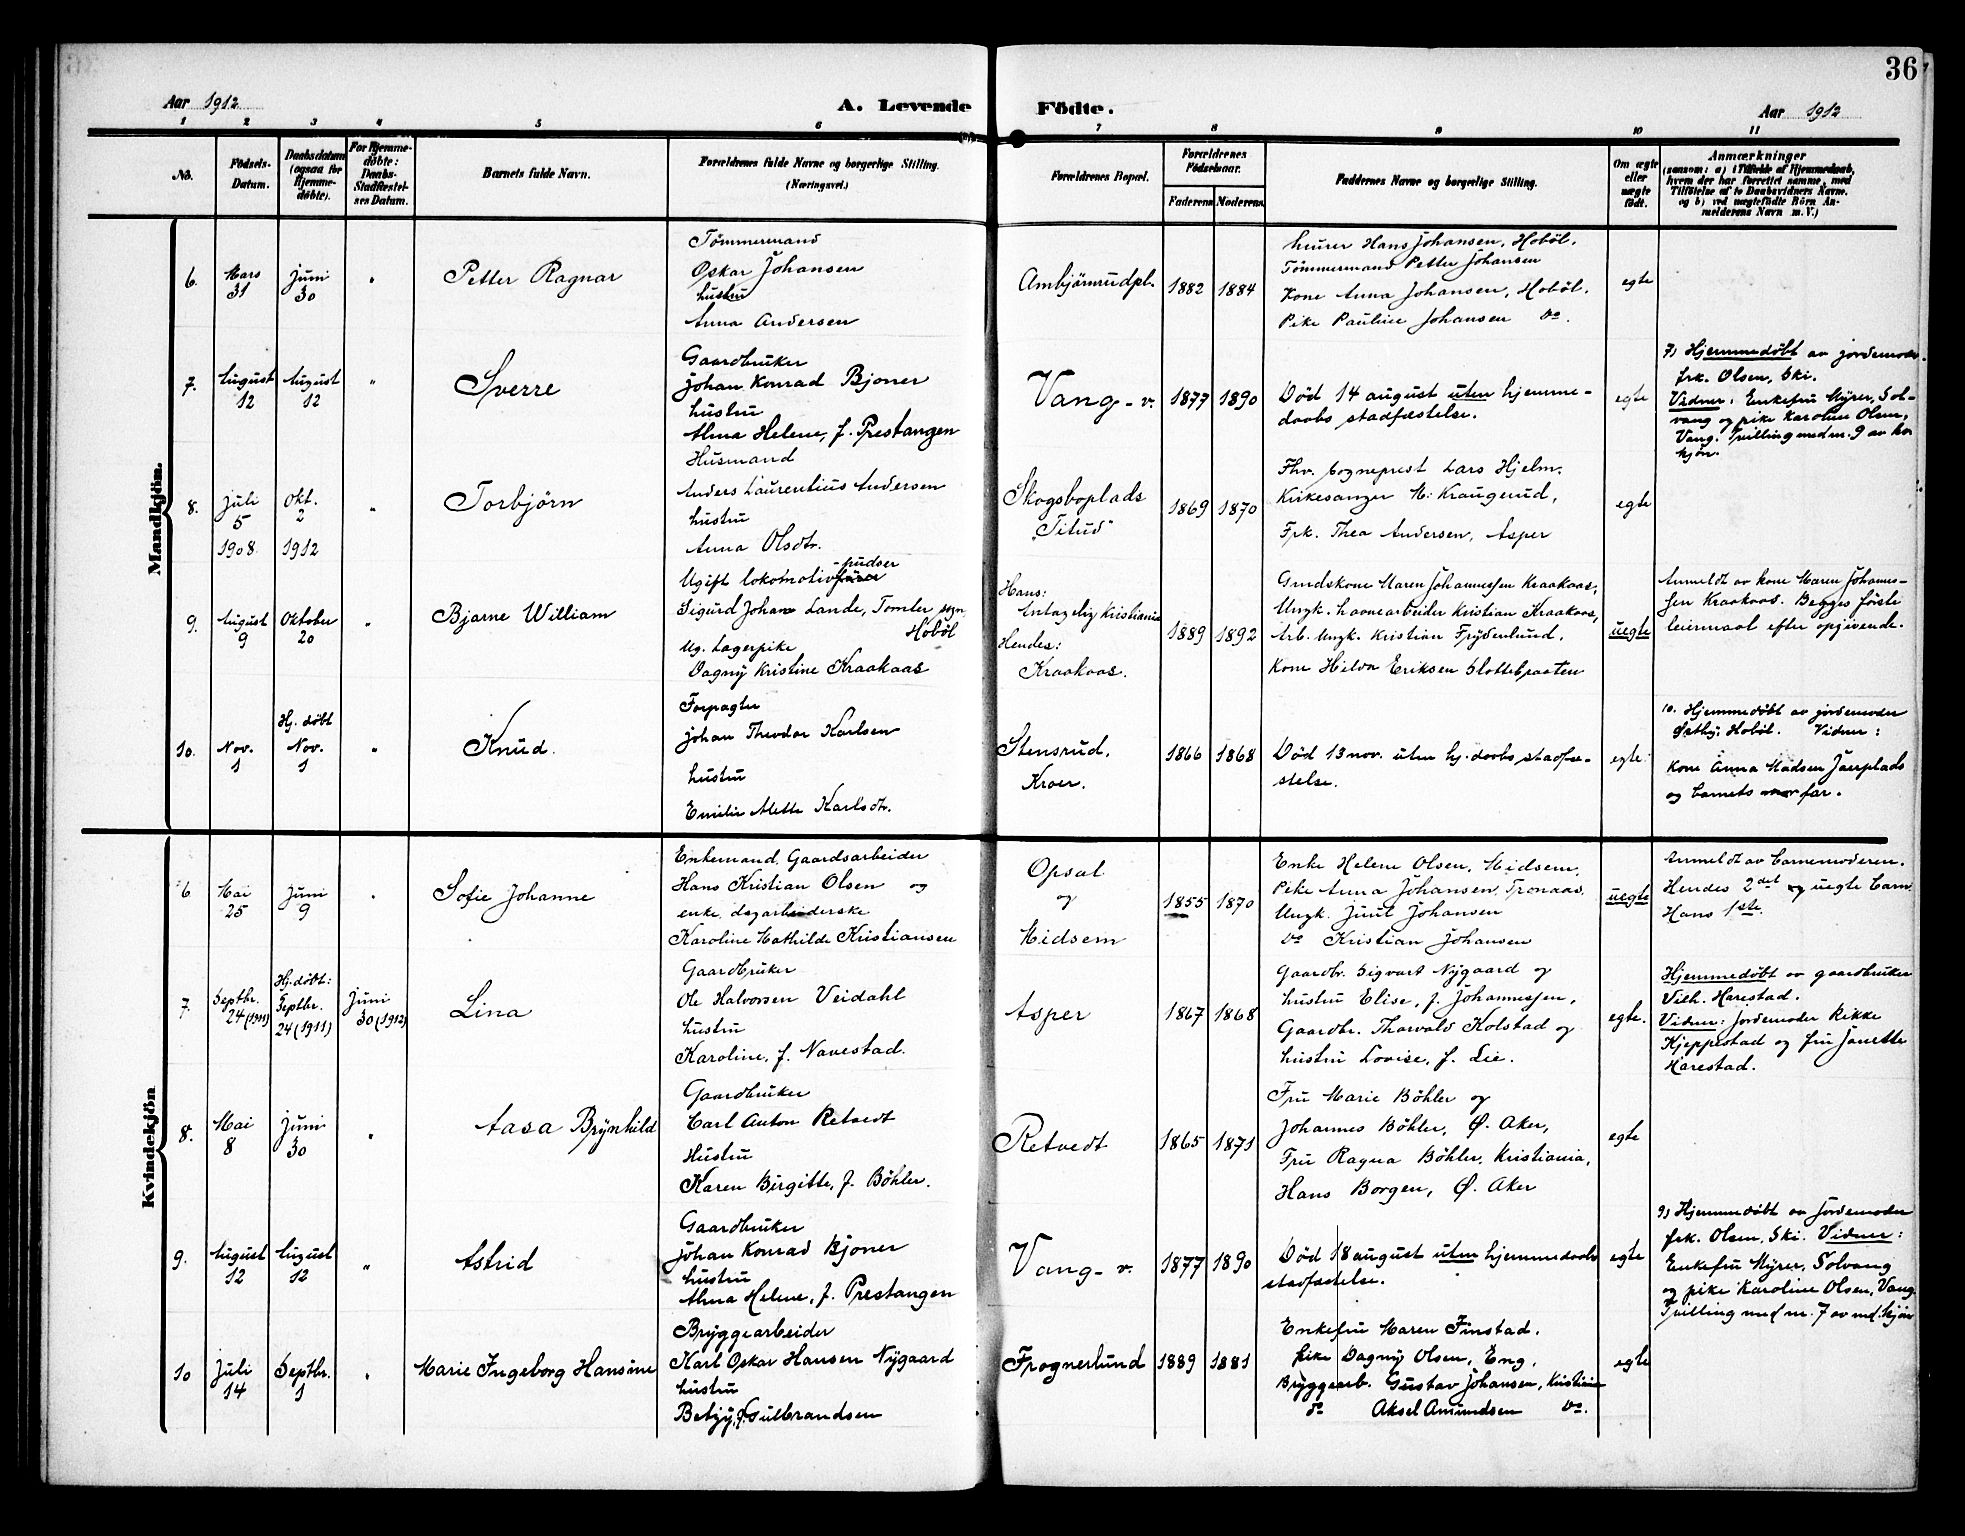 36
Aar 1912
A. Levende Födte.
Aar 1912
1 2 3 4 5 6 7 8 9 10 11
No.
Födsels-
Datum.
Daabsdatum
(ogsaa for
Hjemme-
döbte).
For Hjemme-
döbte:
Daabs-
Stadfæstel-
ses Datum.
Barnets fulde Navn.
Forældrenes fulde Navne og borgerlige Stilling.
(Næringsvei.)
Forældrenes Bopæl.
Forældrenes
Födselsaar.
Faderens Moderens
Faddernes Navne og borgerlige Stilling.
Om ægte
eller
uægte
födt.
Anmærkninger
(saasom: a) i Tilfælde af Hjemmedaab,
hvem der har forrettet samme, med
Tilföielse af to Daabsvidners Navne.
og b) ved uægtefödte Börn An-
melderens Navn m. V.)
Mandkjön.
6.
Mars
31
Juni
30
"
Petter Ragnar
Tömmermand
Oskar Johansen
hustru
Anna Andersen
Ambjörnrudpl.
1882 1884
Hans Johansen, Hoböl.
Tömmermand Petter Johansen
Kone Anna Johansen, Hoböl.
Pike Pauline Johansen Do.
egte
7.
August
12
August
12
"
Sverre
Gaardbruker
Johan Konrad Bjoner
hustru
Alma Helene, f. Prestangen
Vang - v.
1877 1890
Död 14 august uten hjemme-
daabs stadfæstelse.
egte
7) Hjemmedøbt av jordemoder
frk. Olsen, Ski.
Vidner: Enkefru Myrer, Sol-
vang og pike Karoline Olsen,
Vang. Tvilling med nr. 9 av kv.
kjön.
8.
Juli
5
1908
Okt.
2
1912
"
Torbjörn
Husmand
Anders Laurentius Andersen
hustru
Anna Olsdtr.
Skogsboplads
"Titud"
1869 1870
Fhv. Sogneprest Lars Hjelm.
Kirkesanger M. Kraugerud,
Frk. Thea Andersen, Asper
egte
9.
August
9
Oktober
20
"
Bjarne William
-pudser
Ugift lokomotivfører
Sigurd Johan Lande, Tomter sogn
Hoböl
Ug. Lagerpike
Dagny Kristine Kraakaas
Hans:
Kristiania
Hendes:
Kraakaas.
1889 1892
Grndskone Maren Johannessen Kraakaas,
Ungk. havnearbeider Kristian Kraakaas,
Arb. Ungk. Kristian Frydenlund,
Kone Helva Eriksen Slottsparten
uegte
Anmeldt av kone Maren Johannes-
sen Kraakaas. Begges förste
leiermaal efter opgivende.
10.
Nov.
1
Hj. døbt
Nov.
1
"
Knud.
Forpagter
Johan Theodor Karlsen
hustru
Emilie Mette Karlsdtr.
Stensrud.
Kroer.
1866 1868
Död 13 nov. uten hj. daabs stadfæ-
stelse.
egte
10. Hjemmedøbt av jordemoder
Østby, Hoböl. Vidner:
Kone Anna Madsen Jaerplads
og barnets far.
Kvindekjön
6
Mai
25
Juni
9
"
Sofie Johanne
Enkemand, Gaardsarbeider
Hans Kristian Olsen og
enke, dagarbeiderske
Karoline Mathilde Kristiansen
Opsal
og
Midsem
1855 1870
Enke Helene Olsen, Midsem.
Pike Anna Johansen, Tronaas.
Ungk. Juul Johansen
Do Kristian Johansen
uegte
Anmeldt av barnemoderen.
Hendes 2det og uegte barn
Hans 1ste.
7.
Septbr.
24 (1911)
Hj. døbt:
Septbr.
24 (1911)
Juni
30 (1912)
Lina
Gaardbruker
Ole Halvorsen Veidahl
hustru
Karoline, f. Navestad.
Asper
1867 1868
Gaardbr. Sigvart Nygaard og
hustru Elise, f. Johannessen,
Gaardbr. Thorvald Kolstad og
hustru Lovise, f. Lie.
egte.
Hjemmedøbt av gaardbruker
Vilh. Harestad.
Vidner: Jordemoder Rikke
Kjeppestad og fru Janette
Harestad.
8.
Mai
8
Juni
30
"
Aasa Brynhild
Gaardbruker
Carl Anton Retvedt
Hustru
Karen Birgitte, f. Böhler.
Retvedt
1865 1871
Fru Marie Böhler og
Johannes Böhler, Ø. Aker,
Fru Ragna Böhler, Kristiania,
Hans Borgen, Ø. Aker
egte
9.
August
12
August
12
"
Astrid
Gaardbruker
Johan Konrad Bjoner
hustru
Alma Helene, f. Prestangen
Vang - v.
1877 1890
Död 18 august uten hjemmedaabs
stadfæstelse.
egte
9) Hjemmedøbt av Jordemoder
frk. Olsen, Ski. Vidner:
Enkefru Myrer, Solvang
og pike Karoline Olsen, Vang.
Tvilling med nr. 7 av md. kjön
10
Juli
14
Septbr.
1
"
Marie Ingeborg Hansine
Bryggearbeider
Karl Oskar Hansen Nygaard
hustru
Betzy, f. Gulbrandsen
Frognerlund
1889 1881
Enkefru Maren Finstad.
pike Dagny Olsen, Eng.
Bryggearb. Gustav Johansen, Kristiania
do Aksel Amundsen Do.
egte